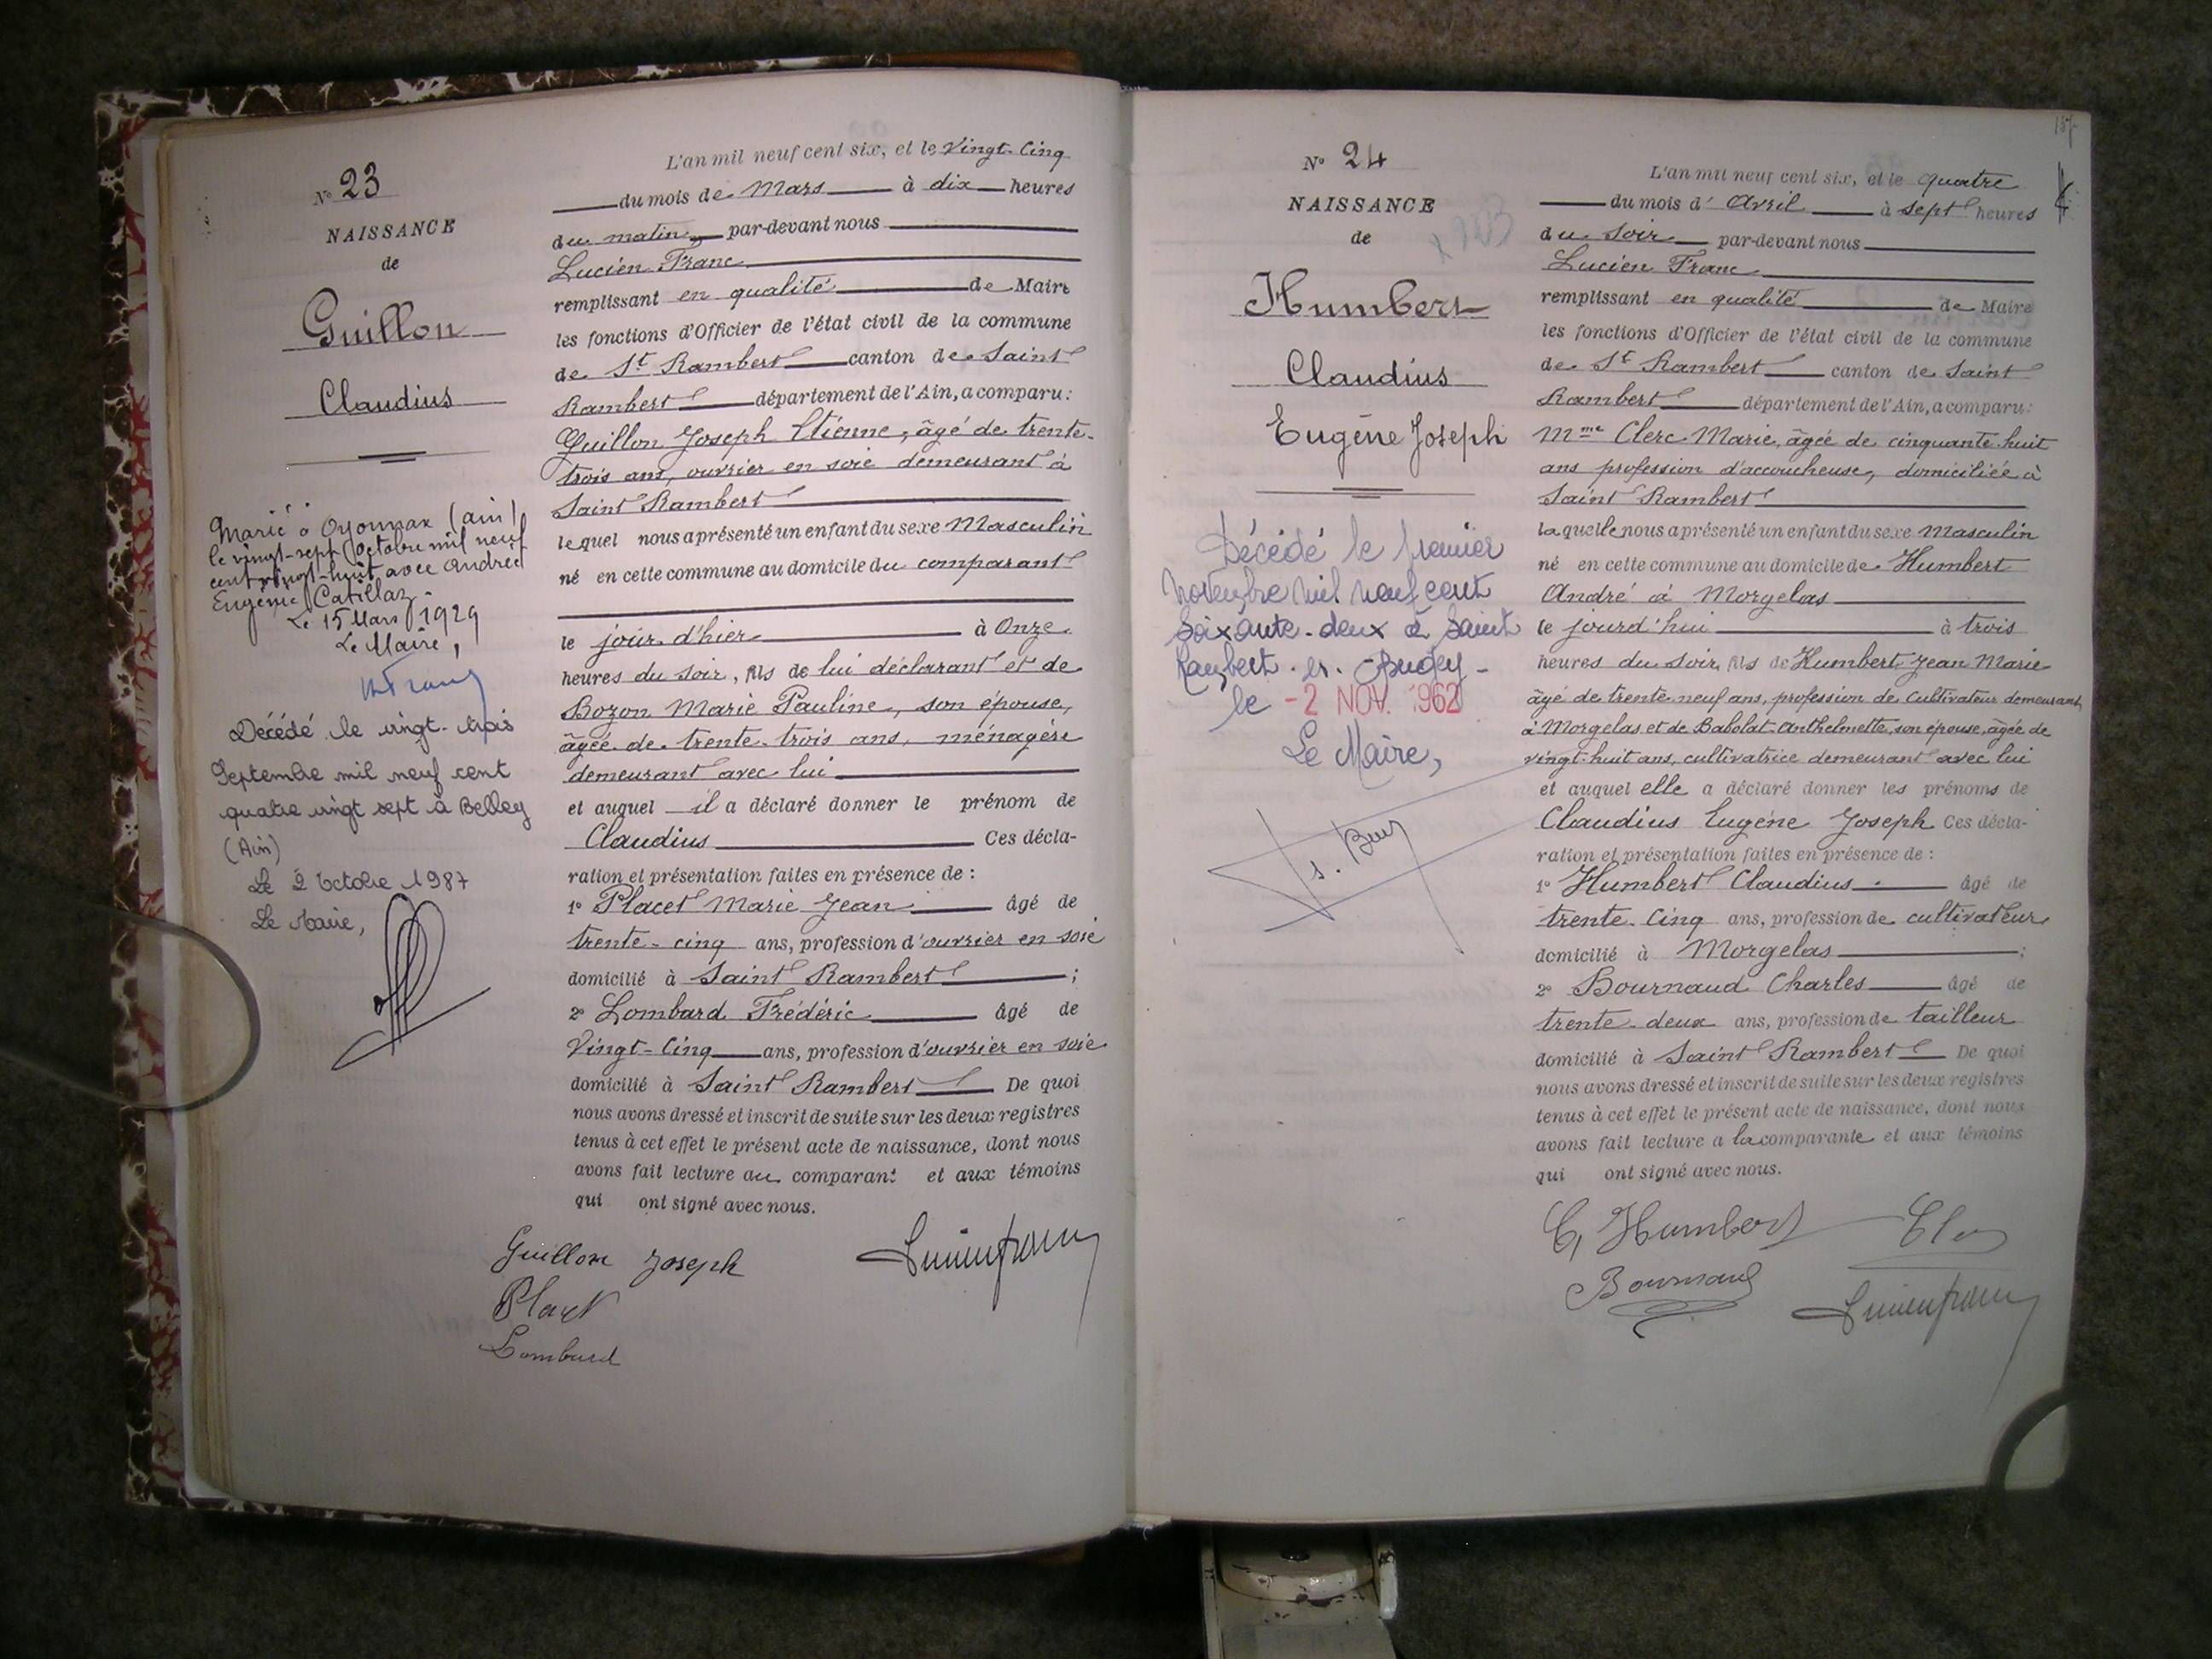 N° 23
NAISSANCE
de
Guillon
Claudius
Marié à Oyonnax (Ain)
le vingt-sept Octobre mil neuf
cent vingt-huit avec Andréa
Eugénie Catillaz.
Le 15 Mars 1929
Le Maire,
Décédé le vingt-trois
Septembre mil neuf cent
quatre vingt sept à Belley
(Ain)
Le 2 Octobre 1987
Le Maire,
L'an mil neuf cent six, et le Vingt-Cinq
du mois de Mars à dix heures
du matin par-devant nous
Lucien Franc
remplissant en qualité de Maire
les fonctions d'Officier de l'état civil de la commune
de St Rambert canton de Saint
Rambert département de l'Ain, a comparu:
Guillon Joseph Etienne, âgé de trente-
trois ans, ouvrier en soie demeurant à
Saint Rambert
lequel nous a présenté un enfant du sexe Masculin
né en cette commune au domicile du comparant
le jour d'hier à Onze
heures du soir, fils de lui déclarant et de
Bozon Marie Pauline, son épouse,
âgée de trente-trois ans, ménagère
demeurant avec lui
et auquel il a déclaré donner le prénom de
Claudius Ces décla-
ration et présentation faites en présence de :
1° Placet Marie Jean âgé de
trente-cinq ans, profession d'ouvrier en soie
domicilié à Saint Rambert ;
2° Lombard Frédéric âgé de
Vingt-Cinq ans, profession d'ouvrier en soie
domicilié à Saint Rambert De quoi
nous avons dressé et inscrit de suite sur les deux registres
tenus à cet effet le présent acte de naissance, dont nous
avons fait lecture au comparant et aux témoins
qui ont signé avec nous.
Guillon Joseph
Lucien Franc
Placet
Lombard
N° 24
NAISSANCE
de
Humbert
Claudius
Eugène Joseph
Décédé le premier
novembre mil neuf cent
soixante-deux à Saint
Rambert-en-Bugey-
le -2 NOV. 1962
Le Maire,
L'an mil neuf cent six, et le quatre
du mois d'Avril à sept heures
du soir par-devant nous
Lucien Franc
remplissant en qualité de Maire
les fonctions d'Officier de l'état civil de la commune
de St Rambert canton de Saint
Rambert département de l'Ain, a comparu:
Mme Clerc Marie, âgée de cinquante-huit
ans profession d'accoucheuse, domiciliée à
Saint Rambert
laquelle nous a présenté un enfant du sexe Masculin
né en cette commune au domicile de Humbert
André à Morgelas
le jourd'hui à trois
heures du soir, fils de Humbert Jean Marie
âgé de trente-neuf ans, profession de Cultivateur demeurant
à Morgelas et de Babolat Anthelmette, son épouse, âgée de
vingt-huit ans, cultivatrice demeurant avec lui
et auquel elle a déclaré donner les prénoms de
Claudius Eugène Joseph Ces décla-
ration et présentation faites en présence de :
1° Humbert Claudius âgé de
trente-Cinq ans, profession de cultivateur
domicilié à Morgelas ;
2° Bournaud Charles âgé de
trente-deux ans, profession de tailleur
domicilié à Saint Rambert De quoi
nous avons dressé et inscrit de suite sur les deux registres
tenus à cet effet le présent acte de naissance, dont nous
avons fait lecture a la comparante et aux témoins
qui ont signé avec nous.
C. Humbert
Bournaud
Lucien Franc